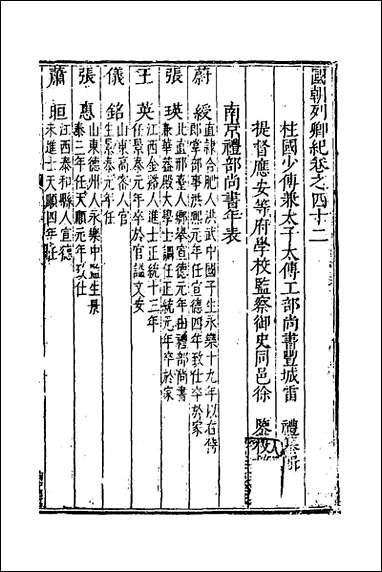 國朝列卿紀卷之四十二
柱國少傅兼太子太傅工部尚書豐城雷　禮
提督應安等府學校監察御史同邑徐　鑒
南京禮部尚書年表
蔚　綬
直隷合肥人洪武中國子生永樂十九年以右侍
郎掌部事洪熙元年任宣德四年致仕卒於家
張　瑛
北直邢臺人鄉舉宣德元年由禮部尚書
兼華蓋殿大學士調任正統元年卒於家
王　英
江西金谿人進士正統十三年
任景泰元年卒於官謚文安
儀　銘
山東高密人官
生景泰元年任
張　惠
山東德州人永樂中監生景
泰三年任天順元年致仕
蕭　晅
江西泰和縣人宣德
未進士天順四年任